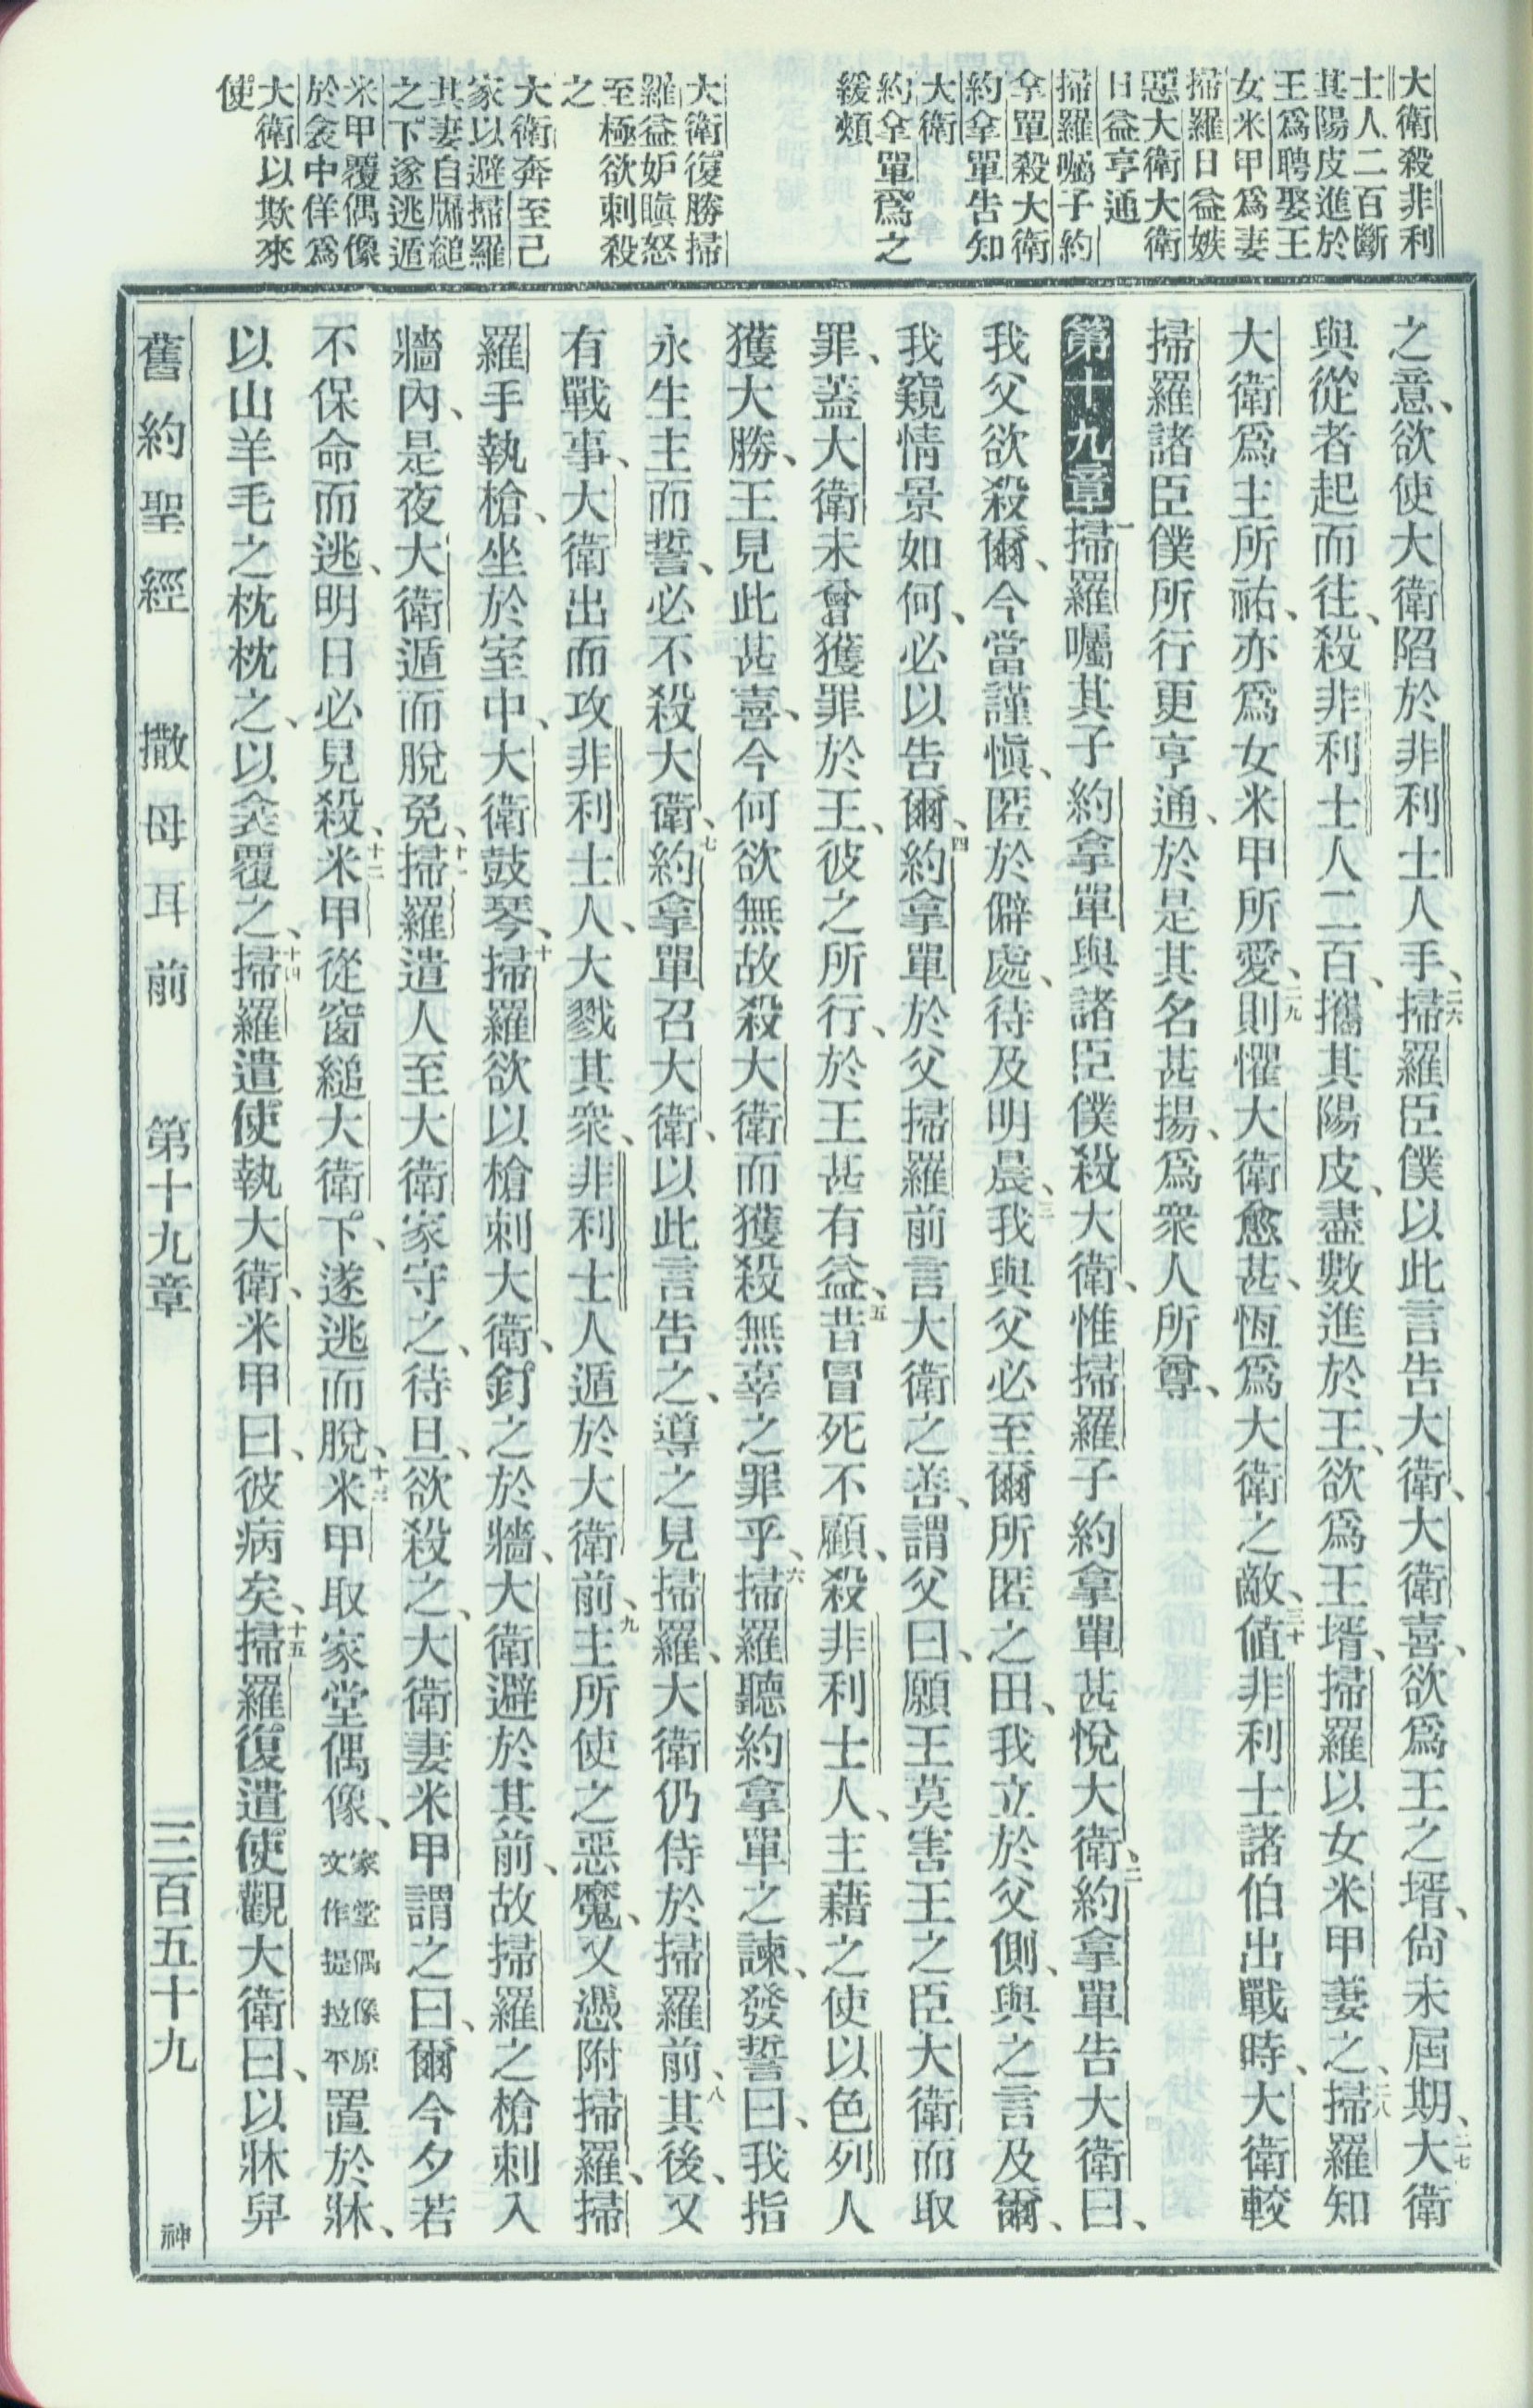 大衛殺非利
士人二百斷
其陽皮進於
王爲聘娶王
女米甲爲妻
掃羅日益嫉
惡大衛大衛
日益亨通
掃羅囑子約
拿單殺大衛
約拿單告知
大衛
約拿單爲之
緩頰
大衛復勝掃
羅益妒瞋怒
至極欲刺殺
之
大衛奔至己
家以避掃羅
其妻自牖縋
之下遂逃遁
米甲覆偶像
於衾中佯爲
大衛以欺來
使
之意、欲使大衛陷於非利士人手、二六掃羅臣僕以此言告大衛、大衛喜、欲爲王之壻、尙未屆期、二七大衛
與從者起而往、殺非利士人二百、攜其陽皮、盡數進於王、欲爲王壻、掃羅以女米甲妻之、二八掃羅知
大衛爲主所祐、亦爲女米甲所愛、二九則懼大衛愈甚、恆爲大衛之敵、三十値非利士諸伯出戰時、大衛較
掃羅諸臣僕所行更亨通、於是其名甚揚、爲衆人所尊、
第十九章 一掃羅囑其子約拿單與諸臣僕殺大衛、惟掃羅子約拿單甚悅大衛、二約拿單告大衛曰、
我父欲殺爾、今當謹愼、匿於僻處、待及明晨、三我與父必至爾所匿之田、我立於父側、與之言及爾、
我窺情景如何、必以告爾、四約拿單於父掃羅前言大衛之善、謂父曰、願王莫害王之臣大衛而取
罪、蓋大衛未曾獲罪於王、彼之所行、於王甚有益、五昔冒死不顧、殺非利士人、主藉之使以色列人
獲大勝、王見此甚喜、今何欲無故殺大衛而獲殺無辜之罪乎、六掃羅聽約拿單之諫、發誓曰、我指
永生主而誓、必不殺大衛、七約拿單召大衛、以此言告之、導之見掃羅、大衛仍侍於掃羅前、八其後、又
有戰事、大衛出而攻非利士人、大戮其衆、非利士人遁於大衛前、九主所使之惡魔、又憑附掃羅、掃
羅手執槍、坐於室中、大衛鼓琴、十掃羅欲以槍刺大衛、釘之於牆、大衛避於其前、故掃羅之槍刺入
牆內、是夜大衛遁而脫免、十一掃羅遣人至大衛家守之、待旦、欲殺之、大衛妻米甲謂之曰、爾今夕若
不保命而逃、明日必見殺、十二米甲從窗縋大衛下、遂逃而脫、十三米甲取家堂偶像、家堂偶像原文作提拉平置於牀、
以山羊毛之枕枕之、以衾覆之、十四掃羅遣使執大衛、米甲曰、彼病矣、十五掃羅復遣使觀大衛曰、以牀舁
舊約聖經 撒母耳前 第十九章 三百五十九 神